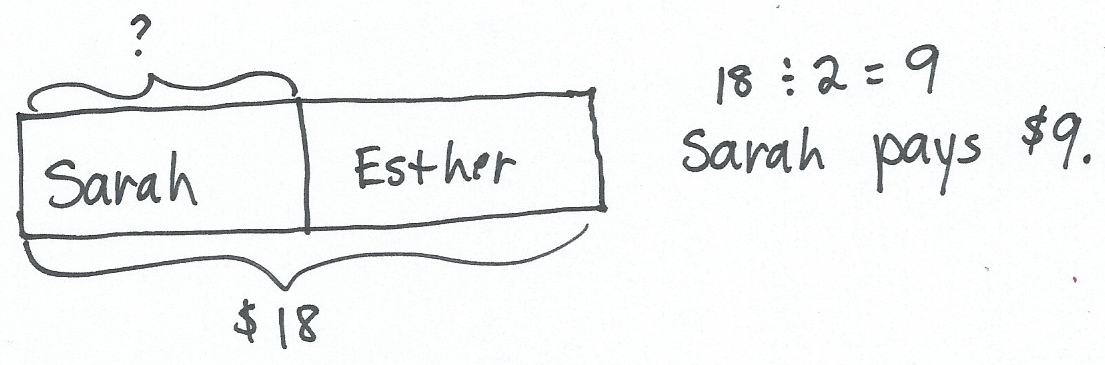 ?
Sarah
Esther
$18
18 ÷ 2 = 9
Sarah pays $9.